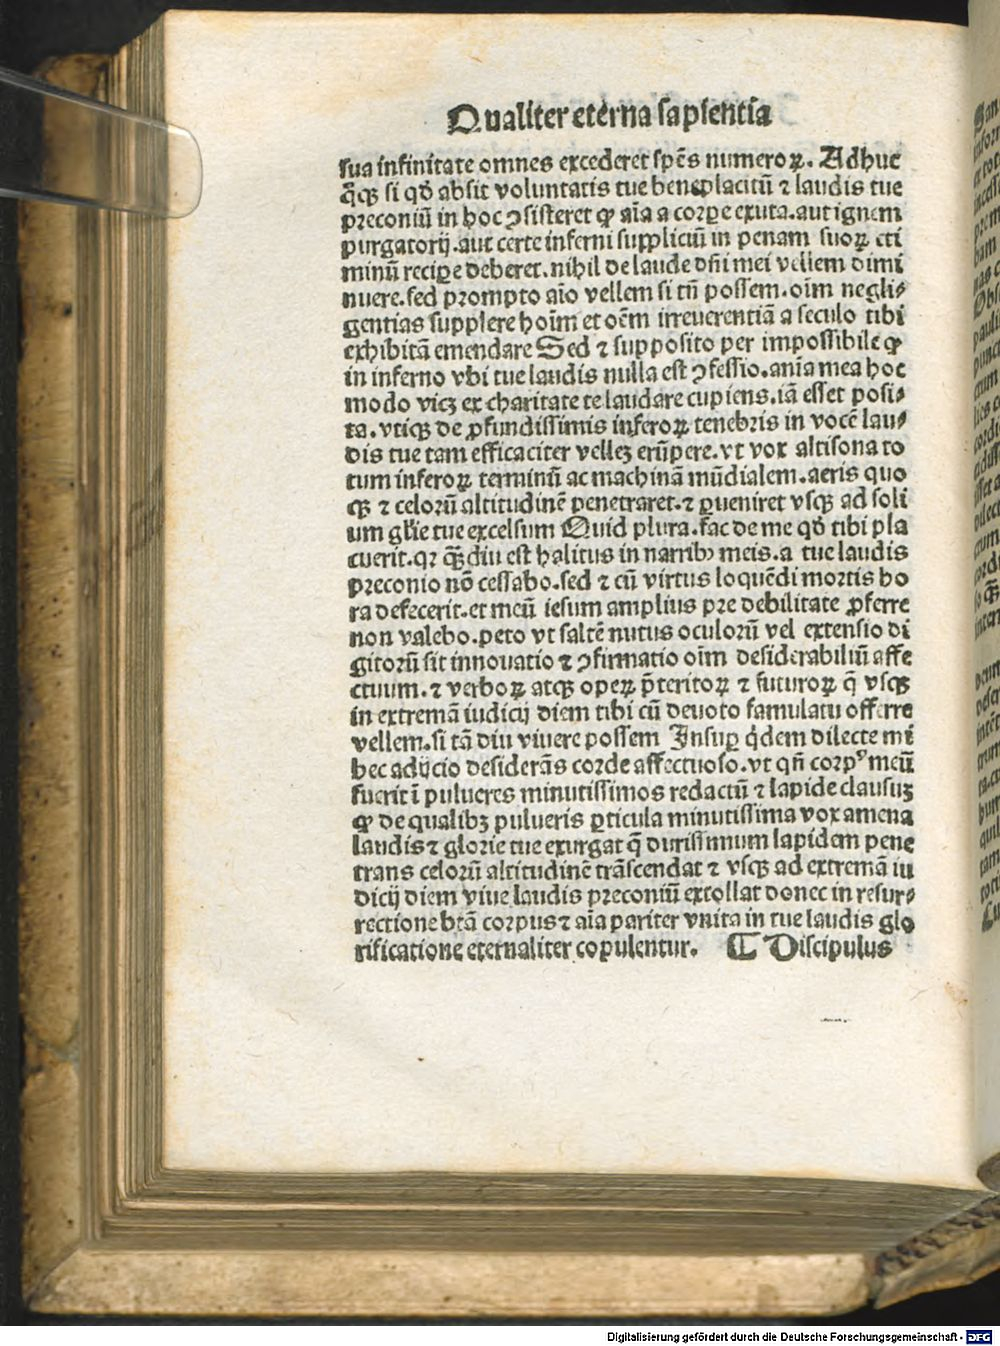 Qualiter eterna sapientia
sua infinitate omnes excederet spēs numeroꝝ. Adhuc
q̄qꝫ si qđ absit voluntatis tue beneplacitū ⁊ laudis tue
preconiū in hoc ꝯsisteret ꝙ aīa a corꝑe exuta. aut ignem
purgatorij. aut certe inferni suppliciū in penam suoꝝ cri
minū reciꝑe deberet. nihil de laude dn̄i mei vellem dimi
nuere. sed prompto aīo vellem si tn̄ possem. oīm negli⸗
gentias supplere hoīm et oēm irreuerentiā a seculo tibi
exhibitā emendare Sed ⁊ supposito per impossibile ꝙ
in inferno vbi tue laudis nulla est ꝯfessio. anīa mea hoc
modo vicꝫ ex charitate te laudare cupiens. iā esset posi⸗
ta. vtiqꝫ de ꝓfundissimis inferoꝝ tenebris in vocē lau⸗
dis tue tam efficaciter velleꝫ erūpere. vt vox altisona to
tum inferoꝝ terminū ac machinā mūdialem. aeris quo
qꝫ ⁊ celorū altitudinē penetraret. ⁊ ꝑueniret vsqꝫ ad soli
um gl̄ie tue excelsum Quid plura. fac de me qđ tibi pla
cuerit. qꝛ q̄ꝫ diu est halitus in naribꝰ meis. a tue laudis
preconio nō cessabo. sed ⁊ cū virtus loquēdi mortis ho
ra defecerit. et meū iesum amplius pre debilitate ꝓferre
non valebo. peto vt saltē nutus oculorū vel extensio di
gitorū sit innouatio ⁊ ꝯfirmatio oīm desiderabiliū affe
ctuum. ⁊ verboꝝ atqꝫ opeꝝ p̄teritoꝝ ⁊ futuroꝝ q̄ vsqꝫ
in extremā iudicij diem tibi cū deuoto famulatu offerre
vellem. si tā diu viuere possem Insuꝑ q̇dem dilecte mi
hec adijcio desiderās corde affectuoso. vt qn̄ corpꝰ meū
fuerit ī pulueres minutissimos redactū ⁊ lapide clausuꝫ
ꝙ de qualibꝫ pulueris ꝑticula minutissima vox amena
laudis ⁊ glorie tue exurgat q̄ durissimum lapidem pene
trans celorū altitudinē trāscendat ⁊ vsqꝫ ad extremā iu
dicij diem viue laudis preconiū extollat donec in resur⸗
rectione btā corpus ⁊ aīa pariter vnita in tue laudis glo
rificatione eternaliter copulentur. ¶ Discipulus
Digitalisierung gefördert durch die Deutsche Forschungsgemeinschaft - DFG